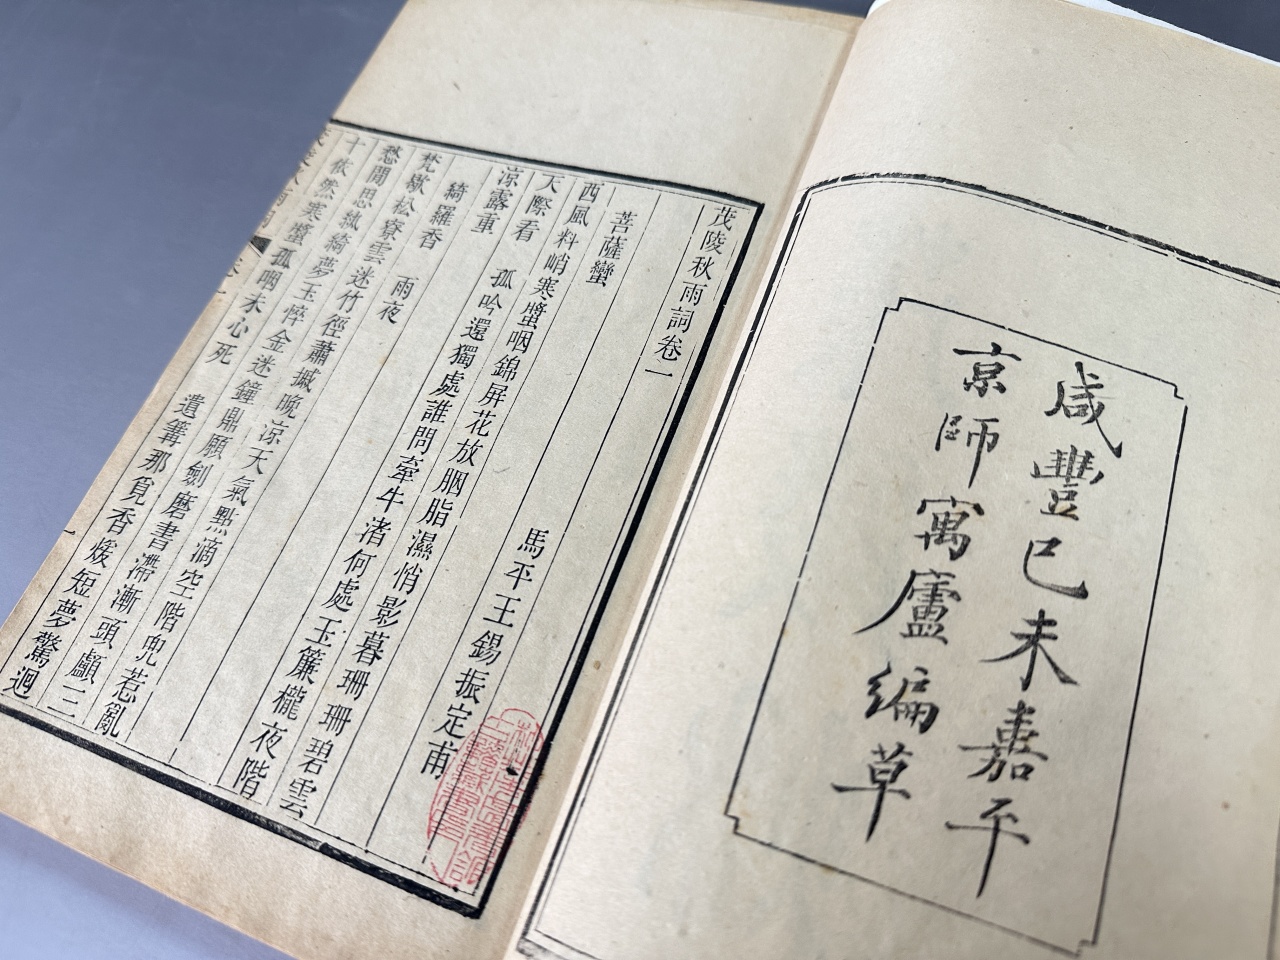 咸豐己未嘉平
京師寓廬編草
茂陵秋雨詞卷一
馬平王錫振定甫
菩薩蠻
西風料峭寒螿咽錦屏花放胭脂濕悄影暮珊珊碧雲
天際看　孤吟還獨處誰問牽牛渚何處玉簾櫳夜階
涼露重
綺羅香　雨夜
梵松寮雲迷竹徑蕭摵晚涼天氣點滴空階兜惹亂
愁閒思紈綺夢玉悴金迷鐘鼎願劍磨書滯漸頭顱三
十依然寒螿孤咽未心死　遺篝那覓香煖短夢驚迴
一